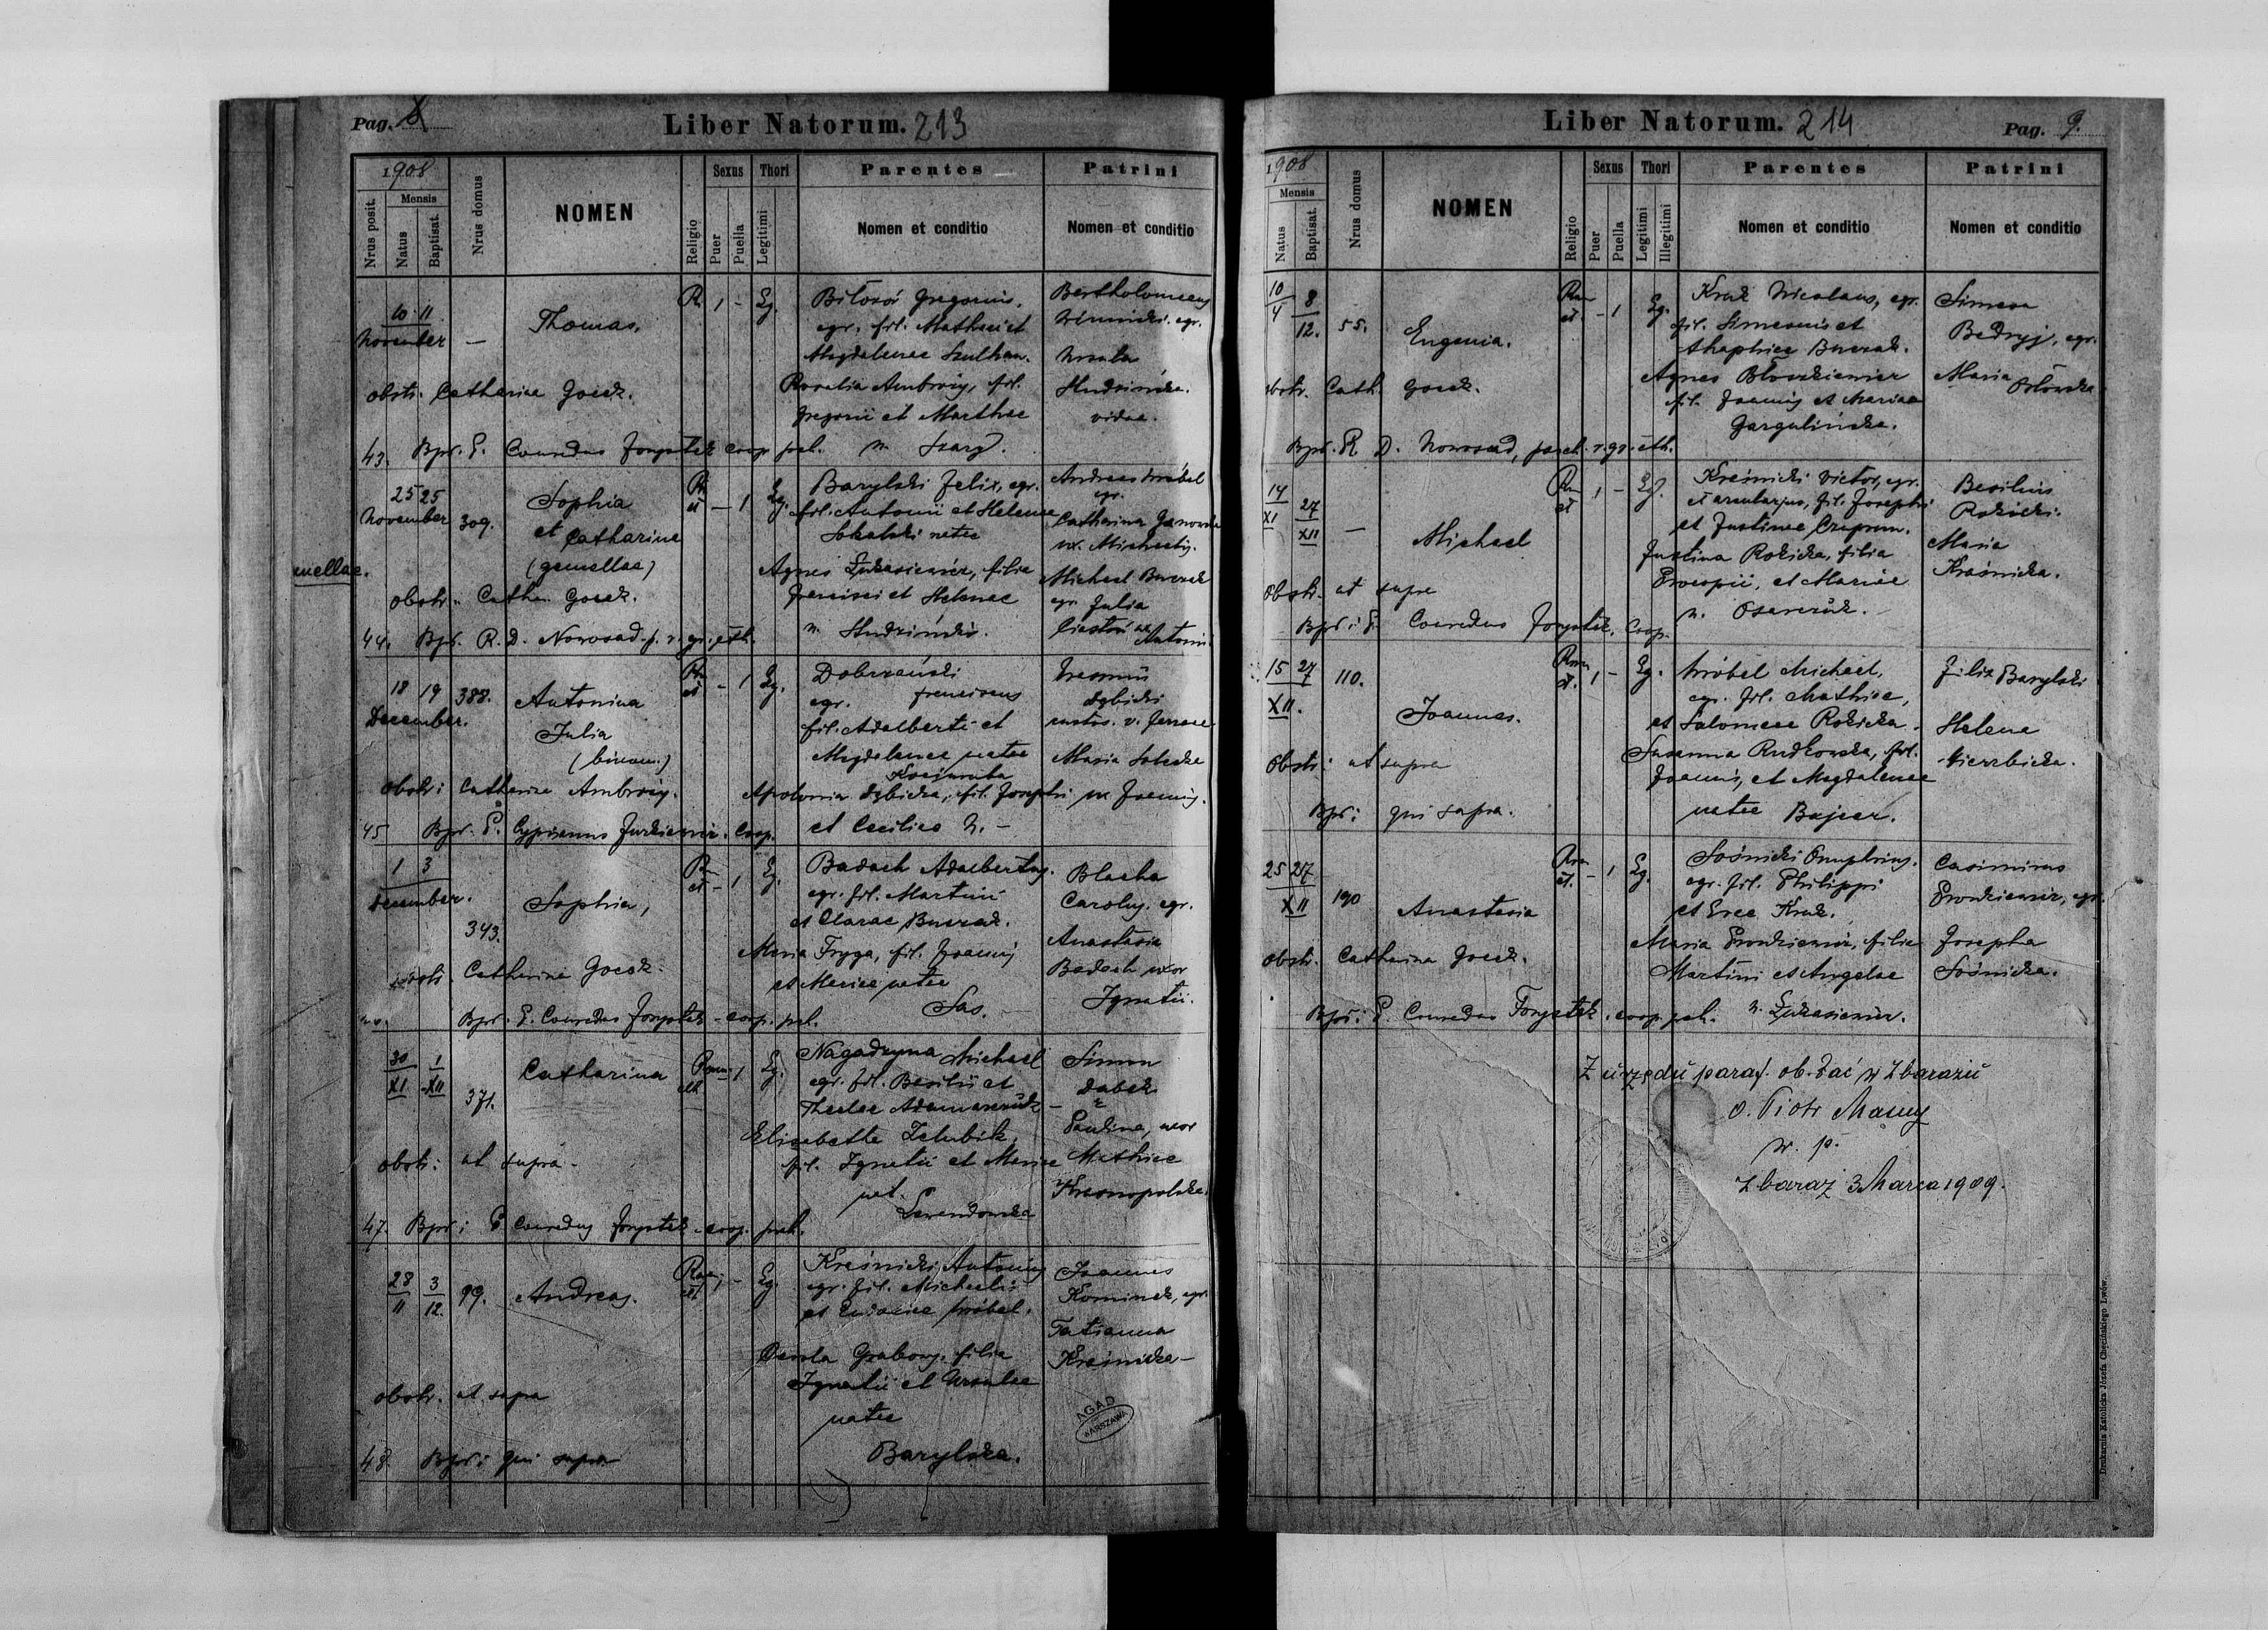 Pag. 8
Liber Natorum. 213
1908
Nrus posit.
Mensis
Natus
Baptisat.
Nrus domus
NOMEN
Religio
Sexus
Puer
Puella
Thori
Legitimi
Parentes
Nomen et conditio
Patrini
Nomen et conditio
10 11
November
—
Thomas.
1 - Lg.
Gregorius,
egr. fil. Mathaei et
Magdalenae
Rosalia Ambroży, fil.
Gregorii et Marthae
n. Szary.
Bartholomeus
egr.
Ursula
Hudzińska.
vidua.
obstr. Catharina Gocek.
43. Bpr. P. Conradus Forystek coop. pch.
25 25
November 309.
Sophia
et Catharina
(gemellae)
- 1 Lg.
Barylski Felix, egr.
fil. Antonii et Helenae
Sokalski natae
Agnes Łukasiewicz, filia
Francisci et Helenae
n. Hudziński.
Andreas Wróbel
egr.
Catharina Janowska
ux. Michaelis.
Michael Burczak
egr. Julia
ux. Antonii
obstr. Cath. Gocek.
44. Bpr. R. D. Nowosad p. r. gr. cth.
18 19 388.
December.
Antonina
Julia
(binom.)
- 1 Lg.
Dobrzański
egr. Franciscus
fil. Adalberti et
Magdalenae natae
Apolonia Dębicka, fil. Josephi
et Ceciliae n. -
Dębicki
Maria
ux Joannis.
obstr: Catharina Ambroży.
45 Bpr. P. Cyprianus Jurkiewicz. Coop.
1 3
December.
343.
Sophia,
- 1 Lg.
Badach Adalbertus.
egr. fil. Martini
et Clarae Burczak.
Maria Fryga, fil. Joannis
et Mariae natae
Sas.
Blacha
Carolus. egr.
Anastasia
Badach uxor
Ignatii.
obstr. Catharina Gocek.
Bpr. P. Conradus Forystek - coop. pch.
30 1
XI XII
371.
Catharina
1 Lg.
Nagadzyna Michael
egr. fil. Basilii et
Theclae
Elisabetha
fil. Ignatii et Mariae
nat.
Lewandowska
Simon
Paulina, uxor
Mathiae
Krasnopolska.
obstr: ut supra -
47. Bpr: P Conradus Forystek - coop. pch.
28 3
11 12. 99.
Andreas.
1 - Lg.
Kreśnicki Antonius
egr. fil. Michaelis
et Eudociae Wróbel.
Carola Grabowy. filia
Ignatii et Ursulae
natae
Barylska.
Joannes
Kominek, egr.
Tatianna
Kreśnicka -
obstr. ut supra
48. Bpr: qui supra
AGAD
WARSZAWA
Liber Natorum. 214
Pag. 9.
1908
Mensis
Natus
Baptisat.
Nrus domus
NOMEN
Religio
Sexus
Puer
Puella
Thori
Legitimi
Illegitimi
Parentes
Nomen et conditio
Patrini
Nomen et conditio
10 8
4 12. 55.
Eugenia.
- 1 Lg.
Kruk Nicolaus, egr.
fil. Simeonis et
Agaphiae Burczak.
Agnes Błoszkiewicz
fil. Joannis et Mariae
Gargulińska.
Simeon
Bedryj, egr.
Maria
Orłowska
obstr. Cath Gocek.
Bpr. R. D. Nowosad, paroch. r. gr. cth.
14 27
XI XII
—
Michael
1 - Lg.
Kreśnicki Victor, egr.
et arcularius, fil. Josephi
et Justinae
Justina Rokicka, filia
Procopii, et Mariae
n.
Basilius
Rokicki.
Maria
Kreśnicka.
Obstr. ut supra
Bpr: P. Conradus Forystek, Coop.
15 27 110.
XII.
Joannes.
1 - Lg.
Wróbel Michael,
egr. fil. Mathiae,
et Salomeae Rokicka.
Susanna Rudkowska, fil.
Joannis, et Magdalenae
natae Bajcar.
Felix Barylski
Helena
Wierzbicka.
Obstr: ut supra
Bpr: qui supra.
25 27
XII 190
Anastasia
- 1 Lg.
Sośnicki Onuphrius.
egr. fil. Philippi
et Evae Kruk.
Maria Pronkiewicz, filia
Martini et Angelae
n. Łukasiewicz.
Casimirus
Pronkiewicz, egr.
Josepha
Sośnicka.
obstr. Catharina Gocek.
Bpr: P. Conradus Forystek. coop. pch.
Z urzędu paraf. ob. łać w Zbarażu
o. Piotr Mauny
w. p.
Zbaraż 3 Marca 1909.
Drukarnia Katolicka Józefa Chęcińskiego Lwów.